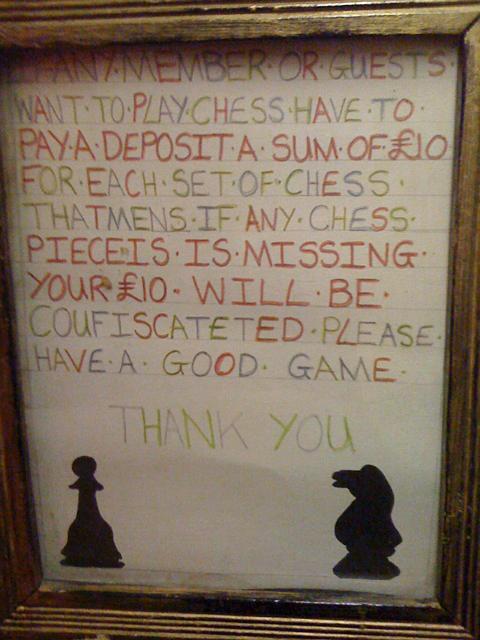 IF·ANY·MEMBER·OR·GUESTS·
WANT·TO·PLAY·CHESS·HAVE·TO·
PAY·A·DEPOSIT·A·SUM·OF·£10
FOR·EACH·SET·OF·CHESS·
THATMENS·IF·ANY·CHESS·
PIECEIS·IS·MISSING·
YOUR·£10·WILL·BE·
COUFISCATETED·PLEASE·
HAVE·A·GOOD·GAME·
THANK YOU